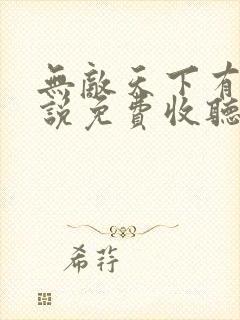 無敵天下有
說免費收聽
希荇